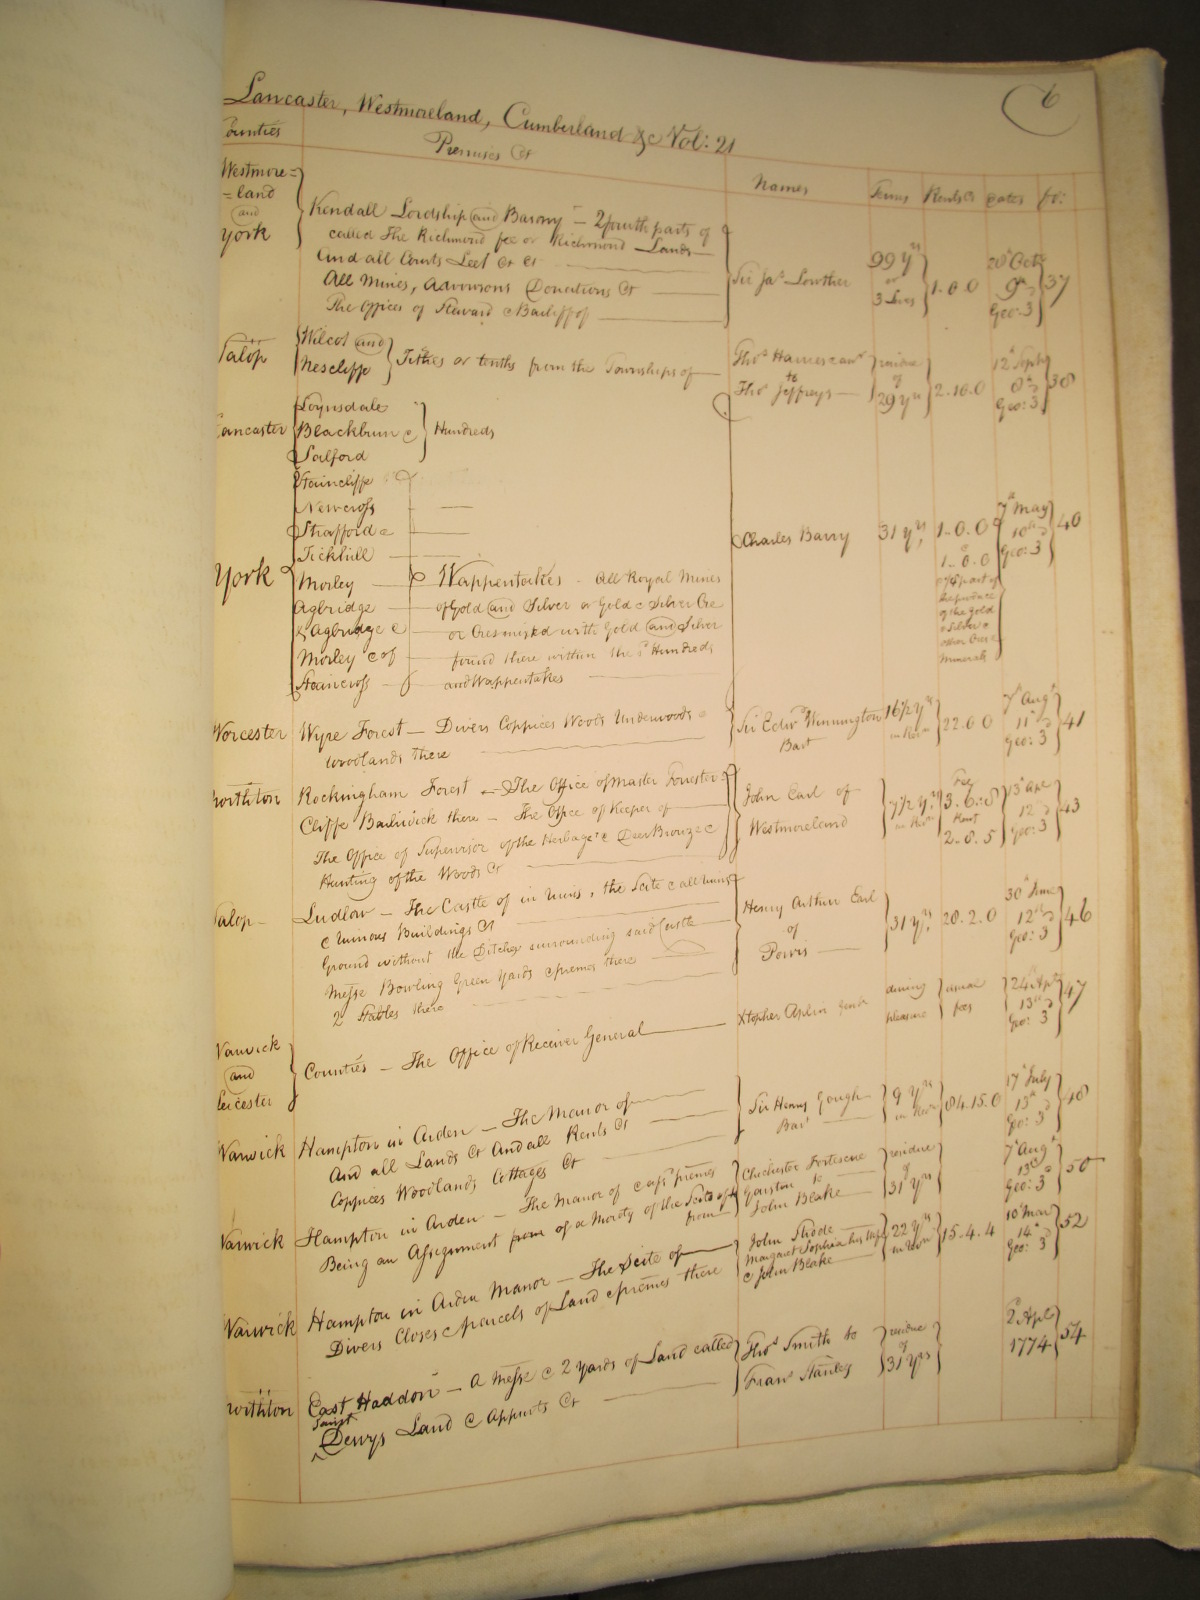 Lancaster, Westmoreland, Cumberland &c Vol: 21
6
Counties
Premises &c
Names
Terms
Rents &c
Dates
fo:
Westmore=
=land
and
York
Kendall Lordship and Barony - 2 fourth parts of
called The Richmond fee or Richmond Lands
And all Courts Leet &c &c
All Mines, Advowsons Donations &c
The Offices of Steward & Bailiff of
Sir Jas Lowther
99 yrs
or
3 Lives
1.0.0
28 Octr
9th
Geo: 3
37
Salop
Wilcot and
Nescliffe
Tithes or tenths from the Townships of
Thos
to
Thos Jeffreys
residue
of
29 yrs
2.10.0
12 Septr
8th
Geo: 3
38
Lancaster
Loynsdale
Blackburn &
Salford
Hundreds
York
Staincliffe
Newcross
Strafford &
Tickhill
Morley
Agbridge
& Agbridge &
Morley & of
Staincross
Wappentakes - All Royal Mines
of Gold and Silver or Gold & Silver Ore
or Ores mixed with Gold and Silver
found there within the sd Hundreds
and Wappentakes
Charles Barry
31 yrs
1.0.0
&
1.0.0
part of
the produce
of the Gold
& Silver &
other Ores &
Minerals
7th May
10th
Geo: 3
40
Worcester
Wyre Forest - Divers Coppices Woods Underwoods &
Woodlands there
Sir Edwd Winnington
Bart
16 1/2 yrs
in Revn
22.0.0
7th Augt
11th
Geo: 3d
41
Northton
Rockingham Forest - The Office of Master Forrester
Cliffe Bailiwick there - The Office of Keeper of
The Office of Supervisor of the Herbage & Deer Browze &
Hunting of the Woods &c
John Earl of
Westmoreland
7 1/2 yrs
in Revn
Fee
3.6.8
Rent
2.8.5
13th Apr
12
Geo: 3
43
Salop
Ludlow - The Castle of in ruins, the Scite & all ruins
& ruinous Buildings &c
Ground without the Ditches surrounding said Castle
Messe Bowling Green Yards & premes there
2 Stables there
Henry Arthur Earl
of
Powis
31 yrs
20.2.0
30th June
12th
Geo: 3
46
Warwick
and
Leicester
Counties - The Office of Receiver General
Xtopher Aplin Gent
during
pleasure
usual
fees
24th Apl
13th
Geo: 3
47
Warwick
Hampton in Arden - The Manor of
And all Lands &c And all Rents &c
Coppices Woodlands Cottages &c
Sir Henry Gough
Bart
9 yrs
in Revn
84.15.0
17th July
13th
Geo: 3d
48
Warwick
Hampton in Arden - The Manor of & afsd premes
Being an Assignment from of a Moiety of the Scite of &
from
Chichester Fortescue
Garston to
John Blake
residue
of
31 yrs
7th Augt
13th
Geo: 3
50
Warwick
Hampton in Arden Manor - The Scite of
Divers Closes & parcels of Land & premes there
John Strode
Margaret Sophia his Wife
& John Blake
22 yrs
in Revn
15.4.4
10th Mar
14th
Geo: 3d
52
Northton
East Haddon - A Messe & 2 Yards of Land called
Saint
^ Dewys Land & Appurts &c
Thos Smith to
Frans Stanley
residue
of
31 yrs
2 Apl
1774
54